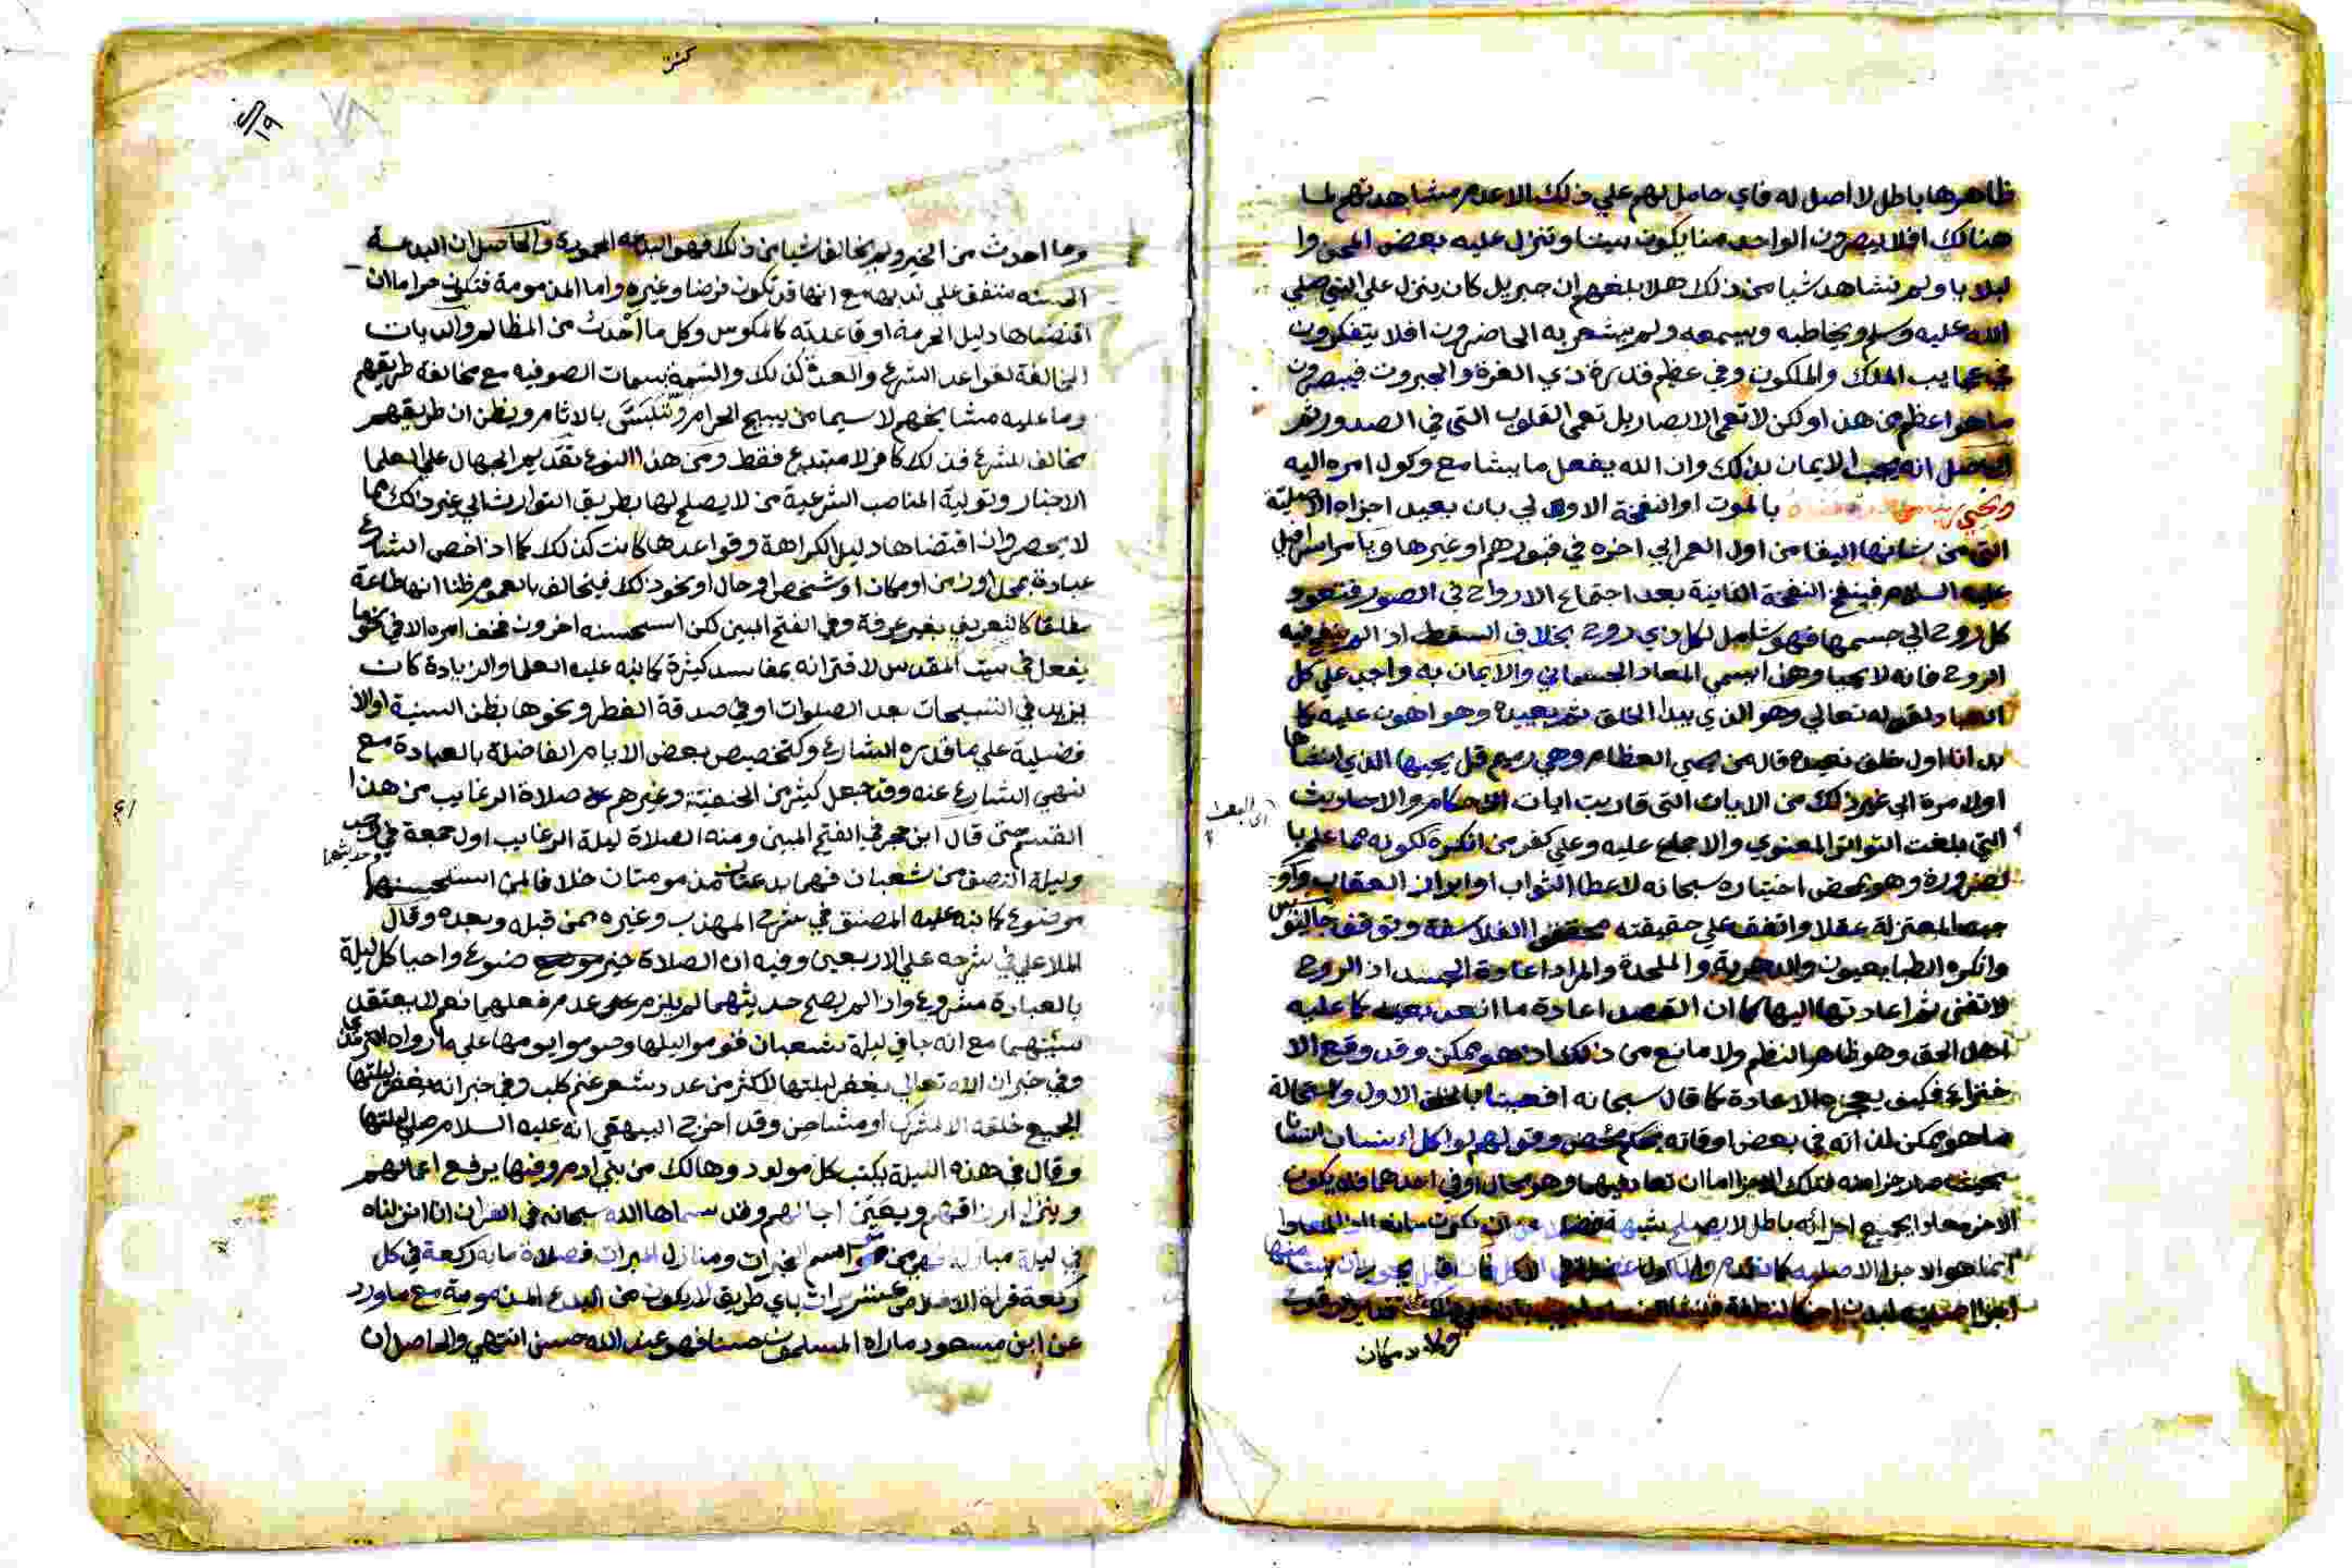 ظاهرها باطل لا اصل له فاي حامل لهم علي ذلك الا عدم مشاهدتهم لما
هنالك افلا يبصرون الواحد منا يكون ميتا وتنزل عليه بعض
ولم نشاهد شيا من ذلك هلا بلغهم ان جبريل كان ينزل علي النبي صلي
الله عليه وسلم ويخاطبه ويسمعه ولم يشعر به الحاضرون افلا يتفكرون
في عجايب الملك والملكوت وفي عظيم قدرة ذي العزة والجبروت فيبصرون
ما هو اعظم من هذا ولكن لا تعمى الابصار بل تعمى القلوب التي في الصدور ثم
الحاصل انه يجب الايمان بذلك وان الله يفعل ما يشا مع وكول امره اليه
بالموت او النفخة الاولي بان يعيد اجزاه الاصلية
التي من شانها البقا من اول العمر الي اخره في قبورهم او غيرها ويامر اسرافيل
عليه السلام فينفخ النفخة الثانية بعد اجتماع الارواح في الصور فتعود
كل روح الي جسمها فهو شامل لكل ذي روح بخلاف السقط اذا لم ينفخ فيه
الروح فانه لا يحيا وهذا يسمي المعاد الجسماني والايمان به واجب على كل
العباد لقوله تعالي وهو الذي يبدا الخلق ثم يعيده وهو اهون عليه كما
بدانا اول خلق نعيده قال من يحيي العظام وهي رميم قل يحييها الذي انشاها
اول مرة الى غير ذلك من الايات التي قاربت ايات الاحكام والاحاديث
التي بلغت التواتر المعنوي والاجماع عليه وعلي كفر من انكره لكونه مما علم با
لضرورة وهو بمحض اختياره سبحانه لاعطا الثواب او ايراد العقاب
المعتزلة عقلا واتفق علي حقيقته الفلاسفة وتوقف جالينوس
وانكره الطبايعيون والدهرية والملحدة والمراد اعادة الجسد اذ الروح
لا تفنى ثم اعادتها اليها كما ان القصد اعادة ما انعدم بعينه كما عليه
اهل الحق وهو ظاهر النظم ولا مانع من ذلك اذ هو ممكن وقد وقع الا
ختراع فكيف يعجزه الاعادة كما قال سبحانه افعيينا بالخلق الاول واستحالة
ما هو ممكن لذاته في بعض اوقاته تحكم محض وقولهم لو اكل انسان انسانا
بحيث صار جزا منه فتلك الاجزا اما ان تعاد فيهما وهو محال او في احدهما فلا يكون
الاخر معادا بجميع اجزائه باطل لا يصلح شبهة
انما هو الاجزا الاصلية
قولا د مكان
وما احدث من الخير ولم يخالف شيا من ذلك فهو البدعة المحمودة والحاصل ان البدعة
الحسنة متفق على ندبها مع انها قد تكون فرضا وغيره واما المذمومة فتكون حراما ان
اقتضاها دليل الحرمة او قاعدته كالمكوس وكل ما احدث من المظالم
المخالفة لقواعد الشرع والعدة كذلك والتسمة بسمات الصوفيه مع مخالفة طريقهم
وما عليه مشايخهم لا سيما من يبيح الحرام ويتلبس بالاثام ويظن ان طريقهم
مخالف للشرع فذلك كافر لا مبتدع فقط ومن هذا النوع تقديم الجهال علي العلما
الاخيار وتولية المناصب الشرعية من لا يصلح لها بطريق التوارث الي غير ذلك مما
لا يحصر وان اقتضاها دليل الكراهة وقواعدها كانت كذلك كما اذا خص الشارع
عبادة بمحل او زمن او مكان او شخص او حال او نحو ذلك فيخالف بالعموم ظنا انها طاعة
مطلقا كالتعريف بغير عرفة وفي الفتح المبين لكن استحسنه اخرون فخف امره الا في نحو ما
يفعل في بيت المقدس لاقترانه بمفاسد كثيرة كما نبه عليه العلما والزيادة كان
يزيد في التسبيحات بعد الصلوات او في صدقة الفطر ونحوها يظن السنية او الا
فضلية علي ما قدره الشارع وكتخصيص بعض الايام الفاضلة بالعبادة مع
نهي الشارع عنه وقد جعل كثير من الحنفية وغيرهم صلاة الرغايب من هذا
القسم حتى قال ابن حجر في الفتح المبين ومنه الصلاة ليلة الرغايب اول جمعة في رجب
وليلة النصف من شعبان فهما بدعتان مذمومتان خلافا لمن استحسنهما وحديثهما
موضوع كما نبه عليه المصنف في شرح المهذب وغيره ممن قبله وبعده وقال
الملا علي في شرحه علي الاربعين وفيه ان الصلاة خير موضوع واحيا كل ليلة
بالعبادة مشروع واذا لم يصح حديثهما لم يلزم عدم فعلهما نعم لا يعتقد
سنيتهما مع انه جا في ليلة شعبان قوموا ليلها وصوموا يومها علي ما رواه الترمذي
وفي خبر ان الله تعالي يغفر ليلتها لاكثر من عدد شعر غنم كلب وفي خبر انه يغفر ليلتها
لجميع خلقه الا لمشرك او مشاحن وقد اخرج البيهقي انه عليه السلام صلي ليلتها
وقال في هذه الليلة يكتب كل مولود وهالك من بني ادم وفيها يرفع اعمالهم
وينزل ارزاقهم ويعين اجالهم وقد سماها الله سبحانه في القران انا انزلناه
في ليلة مباركة فهي من مواسم الخيرات ومنازل المبرات فصلاة مائة ركعة في كل
ركعة قراة الاخلاص عشر مرات باي طريق لا يكون من البدع المذمومة مع ما ورد
عن ابن مسعود ما راه المسلمون حسنا فهو عند الله حسن انتهي والحاصل ان